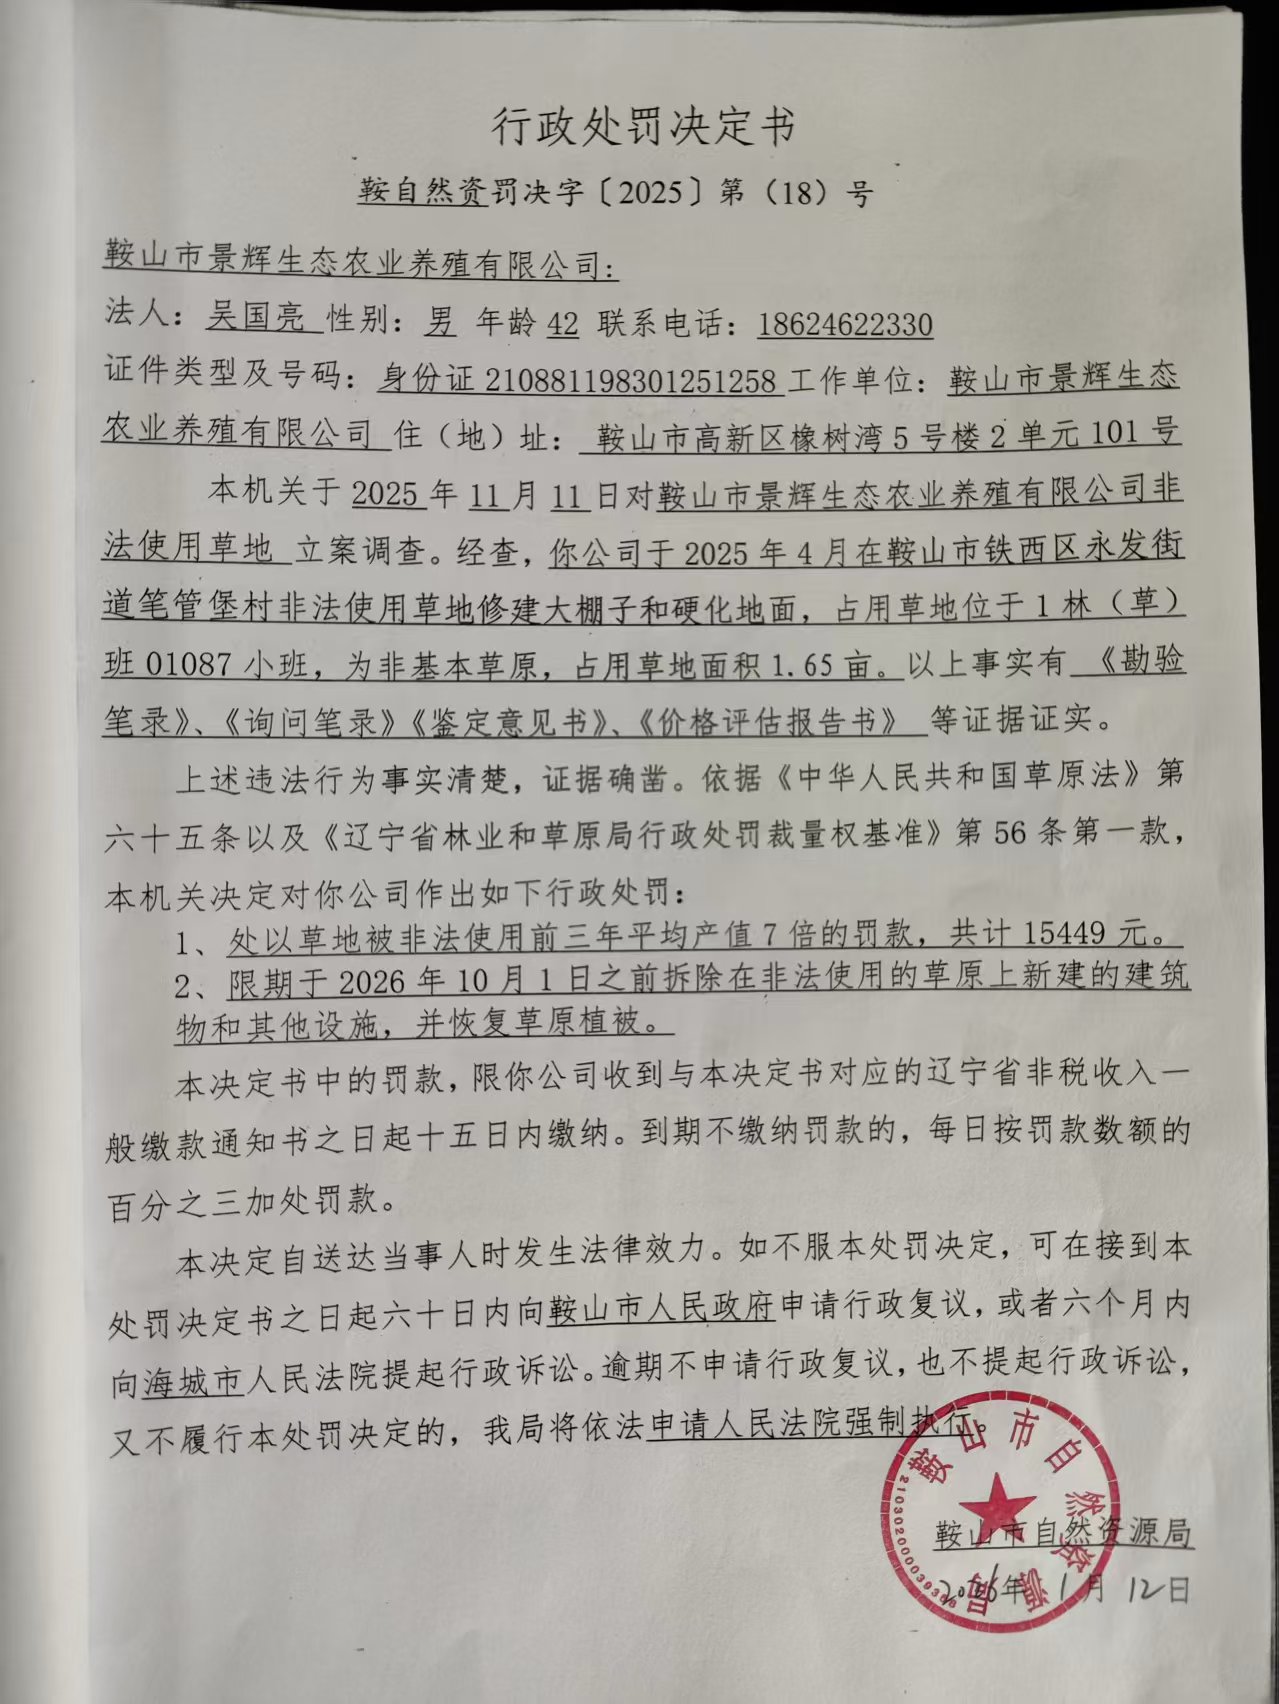 行政处罚决定书
鞍自然资罚决字〔2025〕第（18）号
鞍山市景辉生态农业养殖有限公司：
法人：吴国亮 性别：男 年龄 42 联系电话：18624622330
证件类型及号码：身份证 210881198301251258 工作单位：鞍山市景辉生态
农业养殖有限公司 住（地）址：鞍山市高新区橡树湾 5 号楼 2 单元 101 号
本机关于 2025 年 11 月 11 日对鞍山市景辉生态农业养殖有限公司非
法使用草地 立案调查。经查，你公司于 2025 年 4 月在鞍山市铁西区永发街
道笔管堡村非法使用草地修建大棚子和硬化地面，占用草地位于 1 林（草）
班 01087 小班，为非基本草原，占用草地面积 1.65 亩。以上事实有 《勘验
笔录》、《询问笔录》《鉴定意见书》、《价格评估报告书》 等证据证实。
上述违法行为事实清楚，证据确凿。依据《中华人民共和国草原法》第
六十五条以及《辽宁省林业和草原局行政处罚裁量权基准》第 56 条第一款，
本机关决定对你公司作出如下行政处罚：
1、处以草地被非法使用前三年平均产值 7 倍的罚款，共计 15449 元。
2、限期于 2026 年 10 月 1 日之前拆除在非法使用的草原上新建的建筑
物和其他设施，并恢复草原植被。
本决定书中的罚款，限你公司收到与本决定书对应的辽宁省非税收入一
般缴款通知书之日起十五日内缴纳。到期不缴纳罚款的，每日按罚款数额的
百分之三加处罚款。
本决定自送达当事人时发生法律效力。如不服本处罚决定，可在接到本
处罚决定书之日起六十日内向鞍山市人民政府申请行政复议，或者六个月内
向海城市人民法院提起行政诉讼。逾期不申请行政复议，也不提起行政诉讼，
又不履行本处罚决定的，我局将依法申请人民法院强制执行。
鞍山市自然资源局
鞍山市自然资源局
2026年 1月 12日